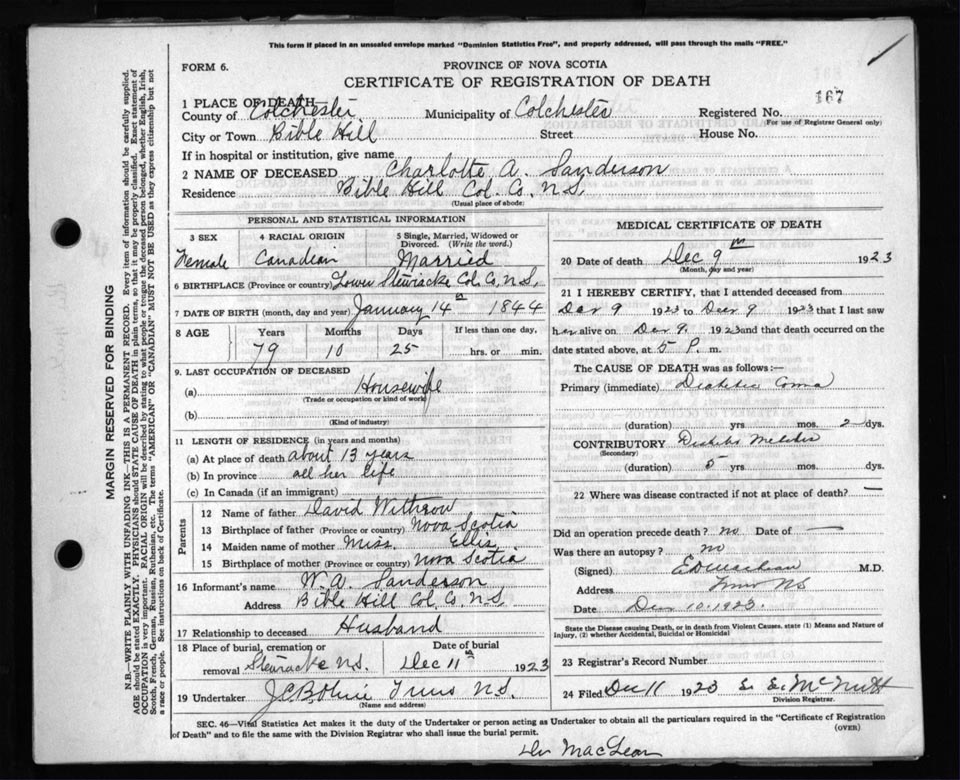 This form if placed in an unsealed envelope marked "Dominion Statistics Free", and properly addressed, will pass through the mails "FREE."
FORM 6.
PROVINCE OF NOVA SCOTIA
CERTIFICATE OF REGISTRATION OF DEATH
167
1 PLACE OF DEATH
County of Colchester Municipality of Colchester Registered No.
(For use of Registrar General only)
City or Town Bible Hill Street House No.
If in hospital or institution, give name
2 NAME OF DECEASED Charlotte A. Sanderson
Residence Bible Hill Col. Co. N.S.
(Usual place of abode)
PERSONAL AND STATISTICAL INFORMATION
3 SEX 4 RACIAL ORIGIN 5 Single, Married, Widowed or Divorced. (Write the word.)
Female Canadian Married
6 BIRTHPLACE (Province or country) Lower Stewiacke Col. Co. N.S.
7 DATE OF BIRTH (month, day and year) January 14 1844
8 AGE Years Months Days If less than one day,
79 10 25 hrs. or min.
9. LAST OCCUPATION OF DECEASED
(a) Housewife
(Trade or occupation or kind of work)
(b)
(Kind of industry)
11 LENGTH OF RESIDENCE (in years and months)
(a) At place of death about 13 years
(b) In province all her life
(c) In Canada (if an immigrant)
Parents
12 Name of father David Withrow
13 Birthplace of father (Province or country) Nova Scotia
14 Maiden name of mother Miss. Ellis
15 Birthplace of mother (Province or country) Nova Scotia
16 Informant's name W. A. Sanderson
Address Bible Hill Col. Co. N.S.
17 Relationship to deceased Husband
18 Place of burial, cremation or removal Date of burial
Stewiacke N.S. Dec 11th 1923
19 Undertaker N.S.
(Name and address)
MEDICAL CERTIFICATE OF DEATH
20 Date of death Dec 9th 1923
(Month, day and year)
21 I HEREBY CERTIFY, that I attended deceased from
Dec 9 1923 to Dec 9 1923 that I last saw
her alive on Dec 9. 1923 and that death occurred on the
date stated above, at 5 P. m.
The CAUSE OF DEATH was as follows:—
Primary (immediate) Diabetic Coma
(duration) yrs mos. 2 dys.
CONTRIBUTORY
(Secondary)
(duration) 5 yrs mos. dys.
22 Where was disease contracted if not at place of death? —
Did an operation precede death? no Date of —
Was there an autopsy? no
(Signed) M.D.
Address Truro NS
Date Dec 10. 1923.
State the Disease causing Death, or in death from Violent Causes, state (1) Means and Nature of Injury, (2) whether Accidental, Suicidal or Homicidal
23 Registrar's Record Number
24 Filed Dec 11 1923
Division Registrar.
SEC. 46—Vital Statistics Act makes it the duty of the Undertaker or person acting as Undertaker to obtain all the particulars required in the "Certificate of Registration
of Death" and to file the same with the Division Registrar who shall issue the burial permit.
(OVER)
Dr MacLean
MARGIN RESERVED FOR BINDING
N.B.—WRITE PLAINLY WITH UNFADING INK—THIS IS A PERMANENT RECORD. Every item of information should be carefully supplied.
AGE should be stated EXACTLY. PHYSICIANS should STATE CAUSE OF DEATH in plain terms, so that it may be properly classified. Exact statement of
OCCUPATION is very important. RACIAL ORIGIN will be described by stating to what people or tongue the deceased person belonged, whether English, Irish,
Scotch, French, German, Russian, Ruthenian, etc. The terms "AMERICAN" OR "CANADIAN" MUST NOT BE USED as they express citizenship but not
a race or people. See instructions on back of Certificate.